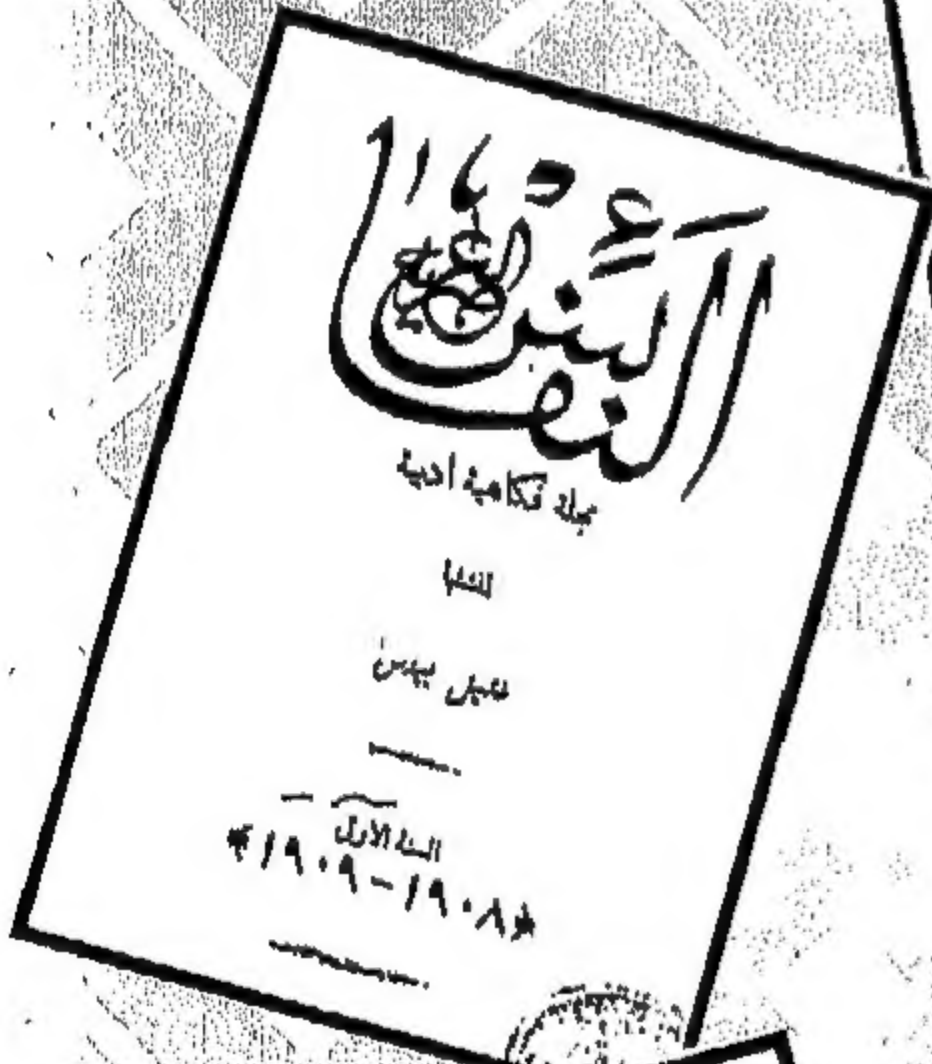 النفائس
مجلة فكاهية ادبية
لمنشئها
خليل بيدس
السنة الاولى
*١٩٠٨-١٩٠٩*